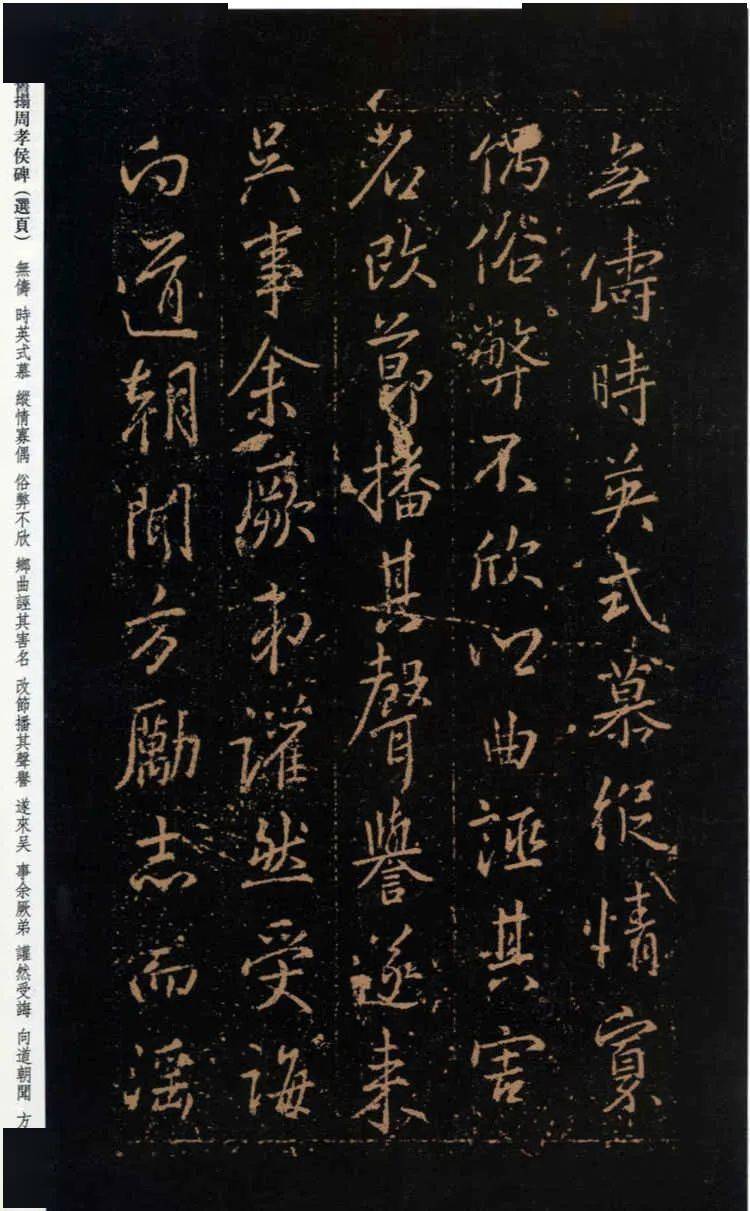 無儔時英式慕縱情寡
偶俗弊不欣鄉曲誣其害
名改節播其聲譽遂来
吴事余厥弟讙然受誨
向道朝聞方勵志而淫
舊搨周孝侯碑（選頁） 無儔 時英式慕 縱情寡偶 俗弊不欣 鄉曲誣其害名 改節播其聲譽 遂來吴 事余厥弟 讙然受誨 向道朝聞 方